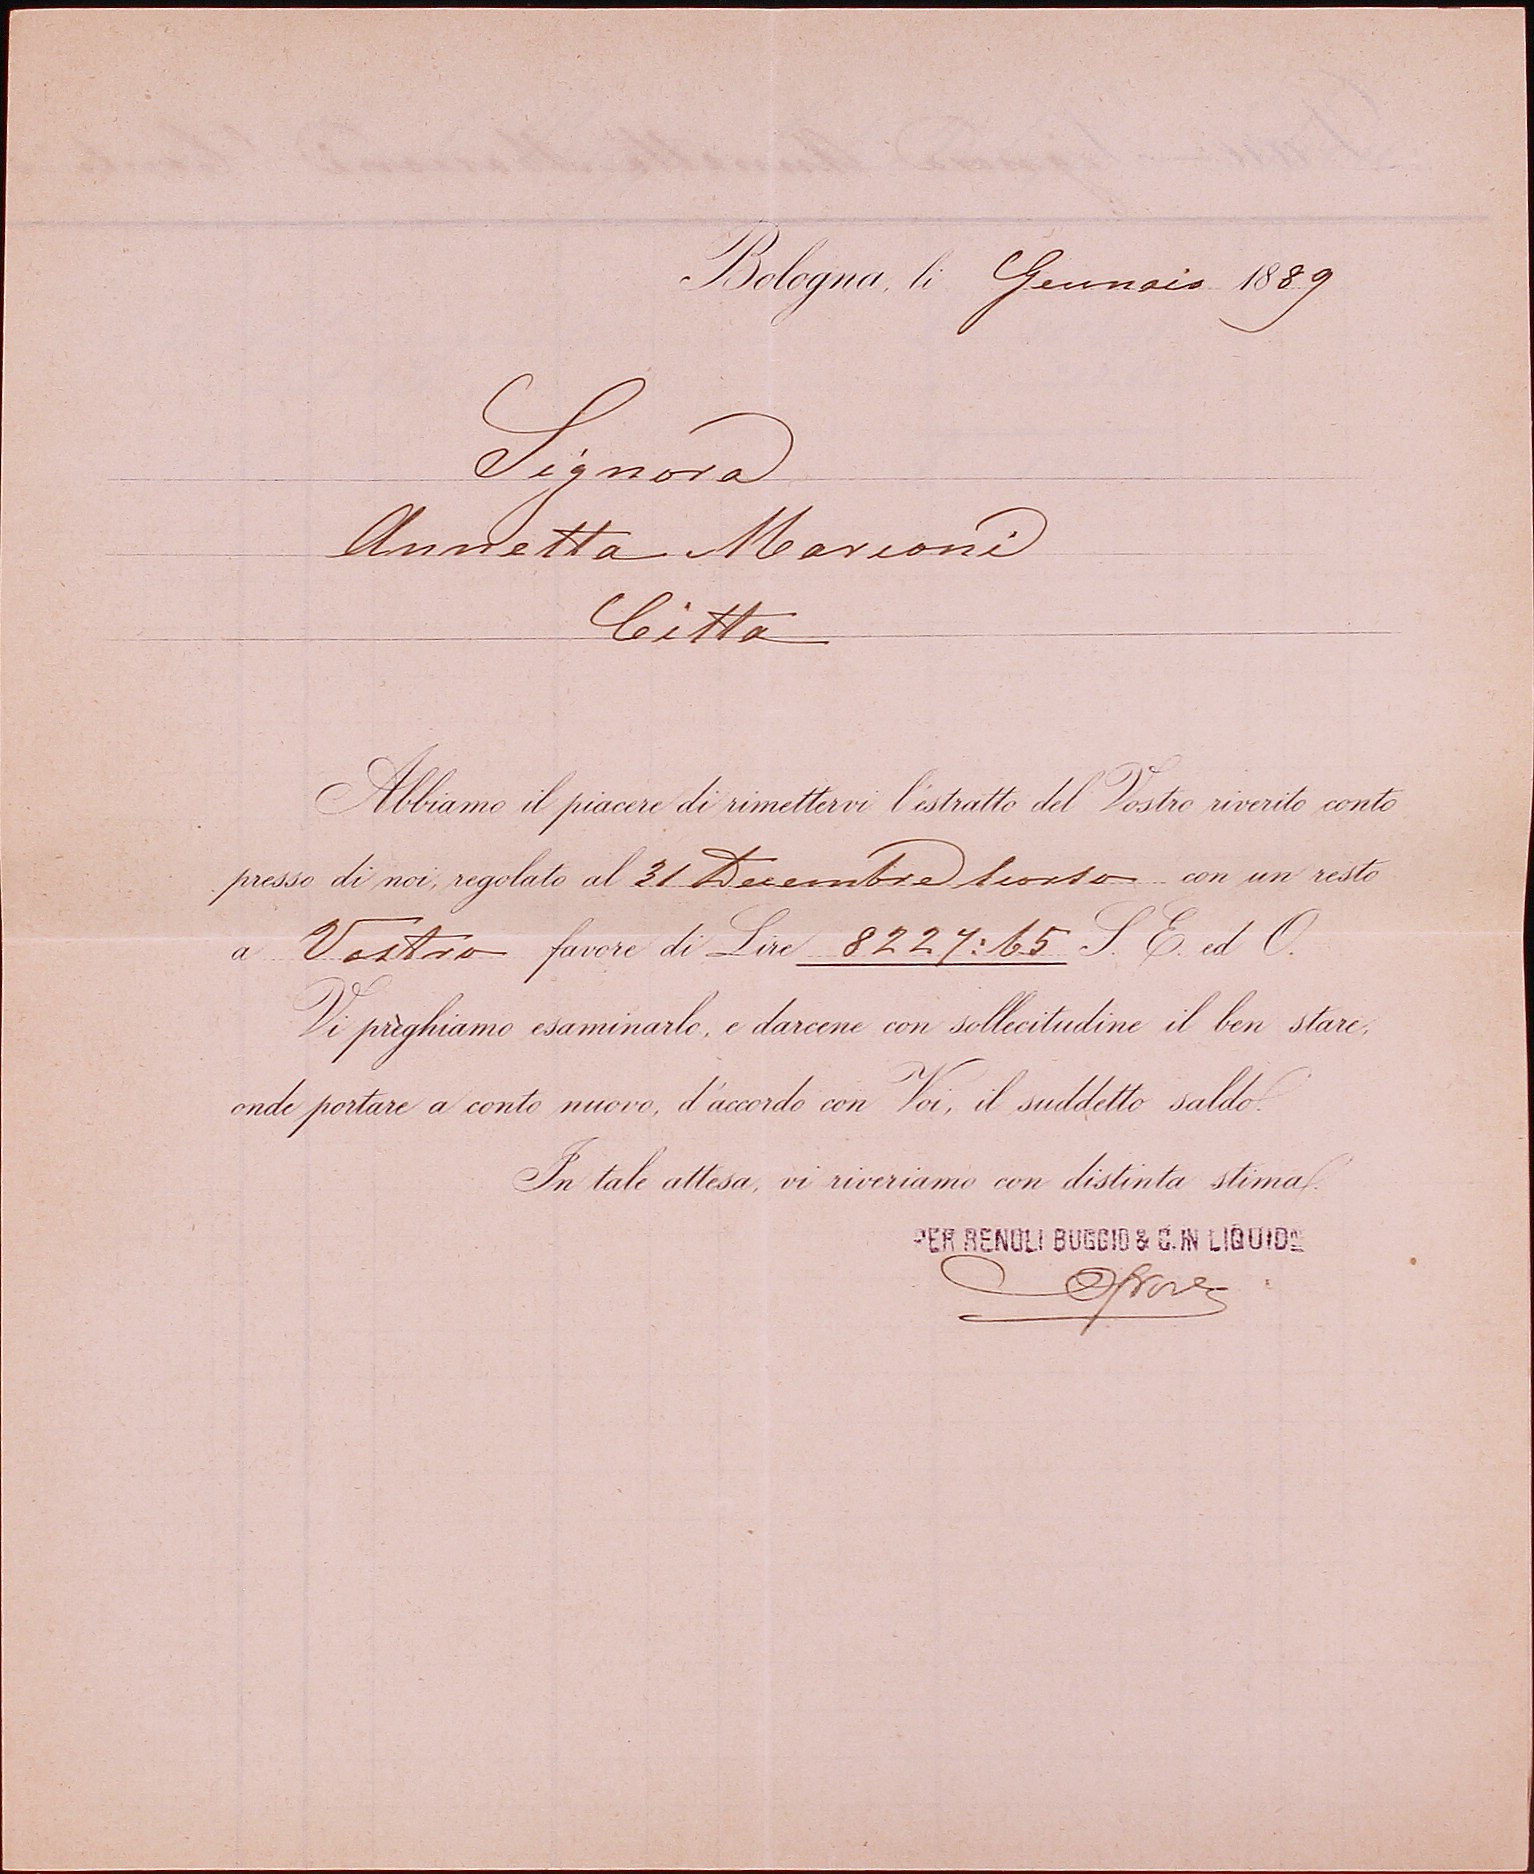 Bologna, li Gennaio 1889
Signora
Annetta Marconi
Citta
Abbiamo il piacere di rimettervi l'estratto del Vostro riverito conto
presso di noi, regolato al 31 Decembre scorso con un resto
a Vostro favore di Lire 8227:65 S. E. ed O.
Vi preghiamo esaminarlo, e darcene con sollecitudine il ben stare,
onde portare a conto nuovo, d'accordo con Voi, il suddetto saldo.
In tale attesa, vi riveriamo con distinta stima.
PER RENOLI BUGGIO & C. IN LIQUIDE